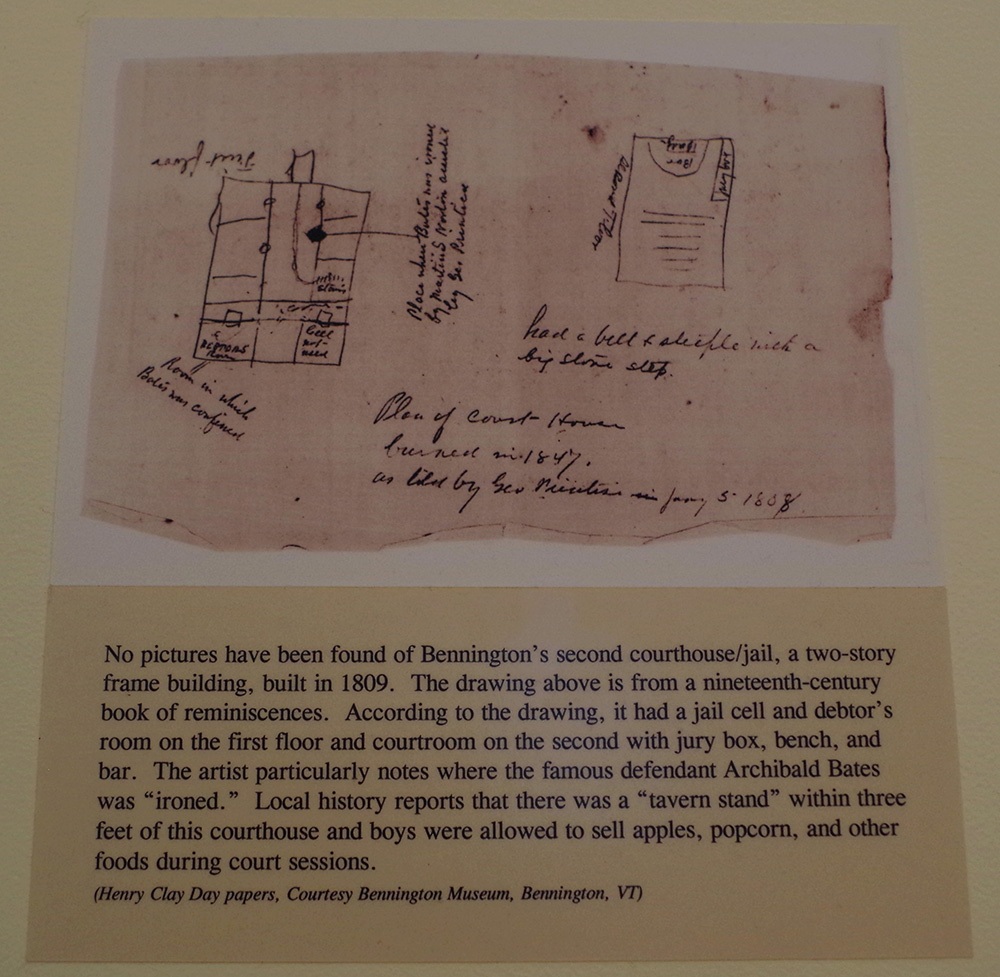 First floor
Place where Bates was ironed
by Martin S Norton
by Geo Prentice
Stairs
DEBTORS
Room
Cell
not
used
Room in which
Bates was confined
Second Floor
Bar
had a bell & steeple with a
big stone step.
Plan of Court House
burned in 1847.
as told by Geo Prentise in Jany 5
No pictures have been found of Bennington's second courthouse/jail, a two-story
frame building, built in 1809.  The drawing above is from a nineteenth-century
book of reminiscences.  According to the drawing, it had a jail cell and debtor's
room on the first floor and courtroom on the second with jury box, bench, and
bar.  The artist particularly notes where the famous defendant Archibald Bates
was “ironed.”  Local history reports that there was a “tavern stand” within three
feet of this courthouse and boys were allowed to sell apples, popcorn, and other
foods during court sessions.
(Henry Clay Day papers, Courtesy Bennington Museum, Bennington, VT)